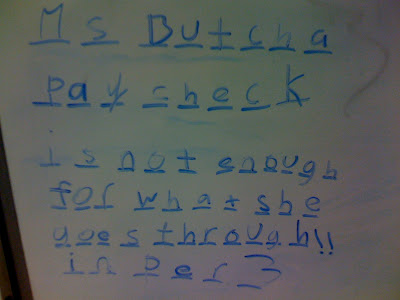 Ms Butcha
paycheck
is not enough
for what she
goes through!!
in per 3